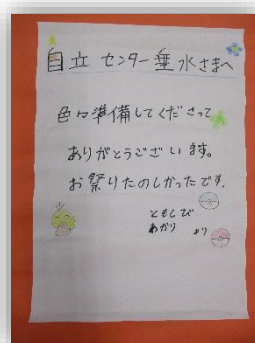 自立センター垂水さまへ
色々準備してくださって
ありがとうございます。
お祭りたのしかったです。
ともしび
あかり より